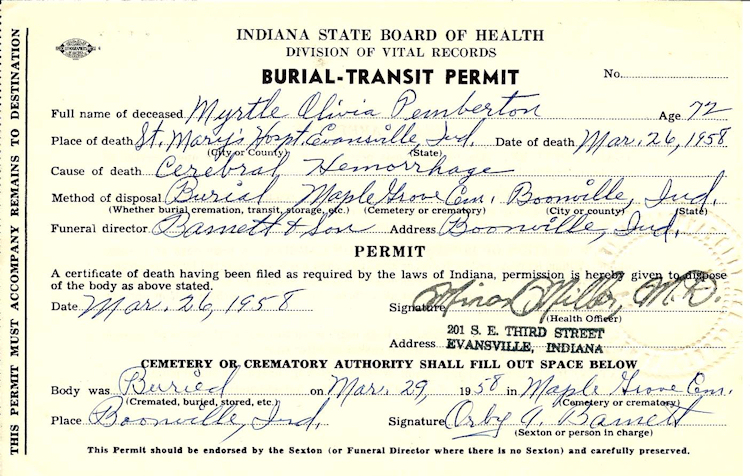 INDIANA STATE BOARD OF HEALTH
DIVISION OF VITAL RECORDS
BURIAL-TRANSIT PERMIT
No.
Full name of deceased Myrtle Olivia Pemberton Age 72
Place of death St. Mary's Hospt. Evansville, Ind. Date of death Mar. 26, 1958
(City or County) (State)
Cause of death Cerebral Hemorrhage
Method of disposal Burial Maple Grove Cem. Boonville, Ind.
(Whether burial, cremation, transit, storage, etc.) (Cemetery or crematory) (City or county) (State)
Funeral director Barnett & Son Address Boonville, Ind.
PERMIT
A certificate of death having been filed as required by the laws of Indiana, permission is hereby given to dispose
of the body as above stated.
Date Mar. 26, 1958 Signature Minor Miller, M.D.
(Health Officer)
Address 201 S. E. THIRD STREET
EVANSVILLE, INDIANA
CEMETERY OR CREMATORY AUTHORITY SHALL FILL OUT SPACE BELOW
Body was Buried on Mar. 29, 1958 in Maple Grove Cem.
(Cremated, buried, stored, etc.) (Cemetery or crematory)
Place Boonville, Ind. Signature Orby A. Barnett
(Sexton or person in charge)
This Permit should be endorsed by the Sexton (or Funeral Director where there is no Sexton) and carefully preserved.
THIS PERMIT MUST ACCOMPANY REMAINS TO DESTINATION